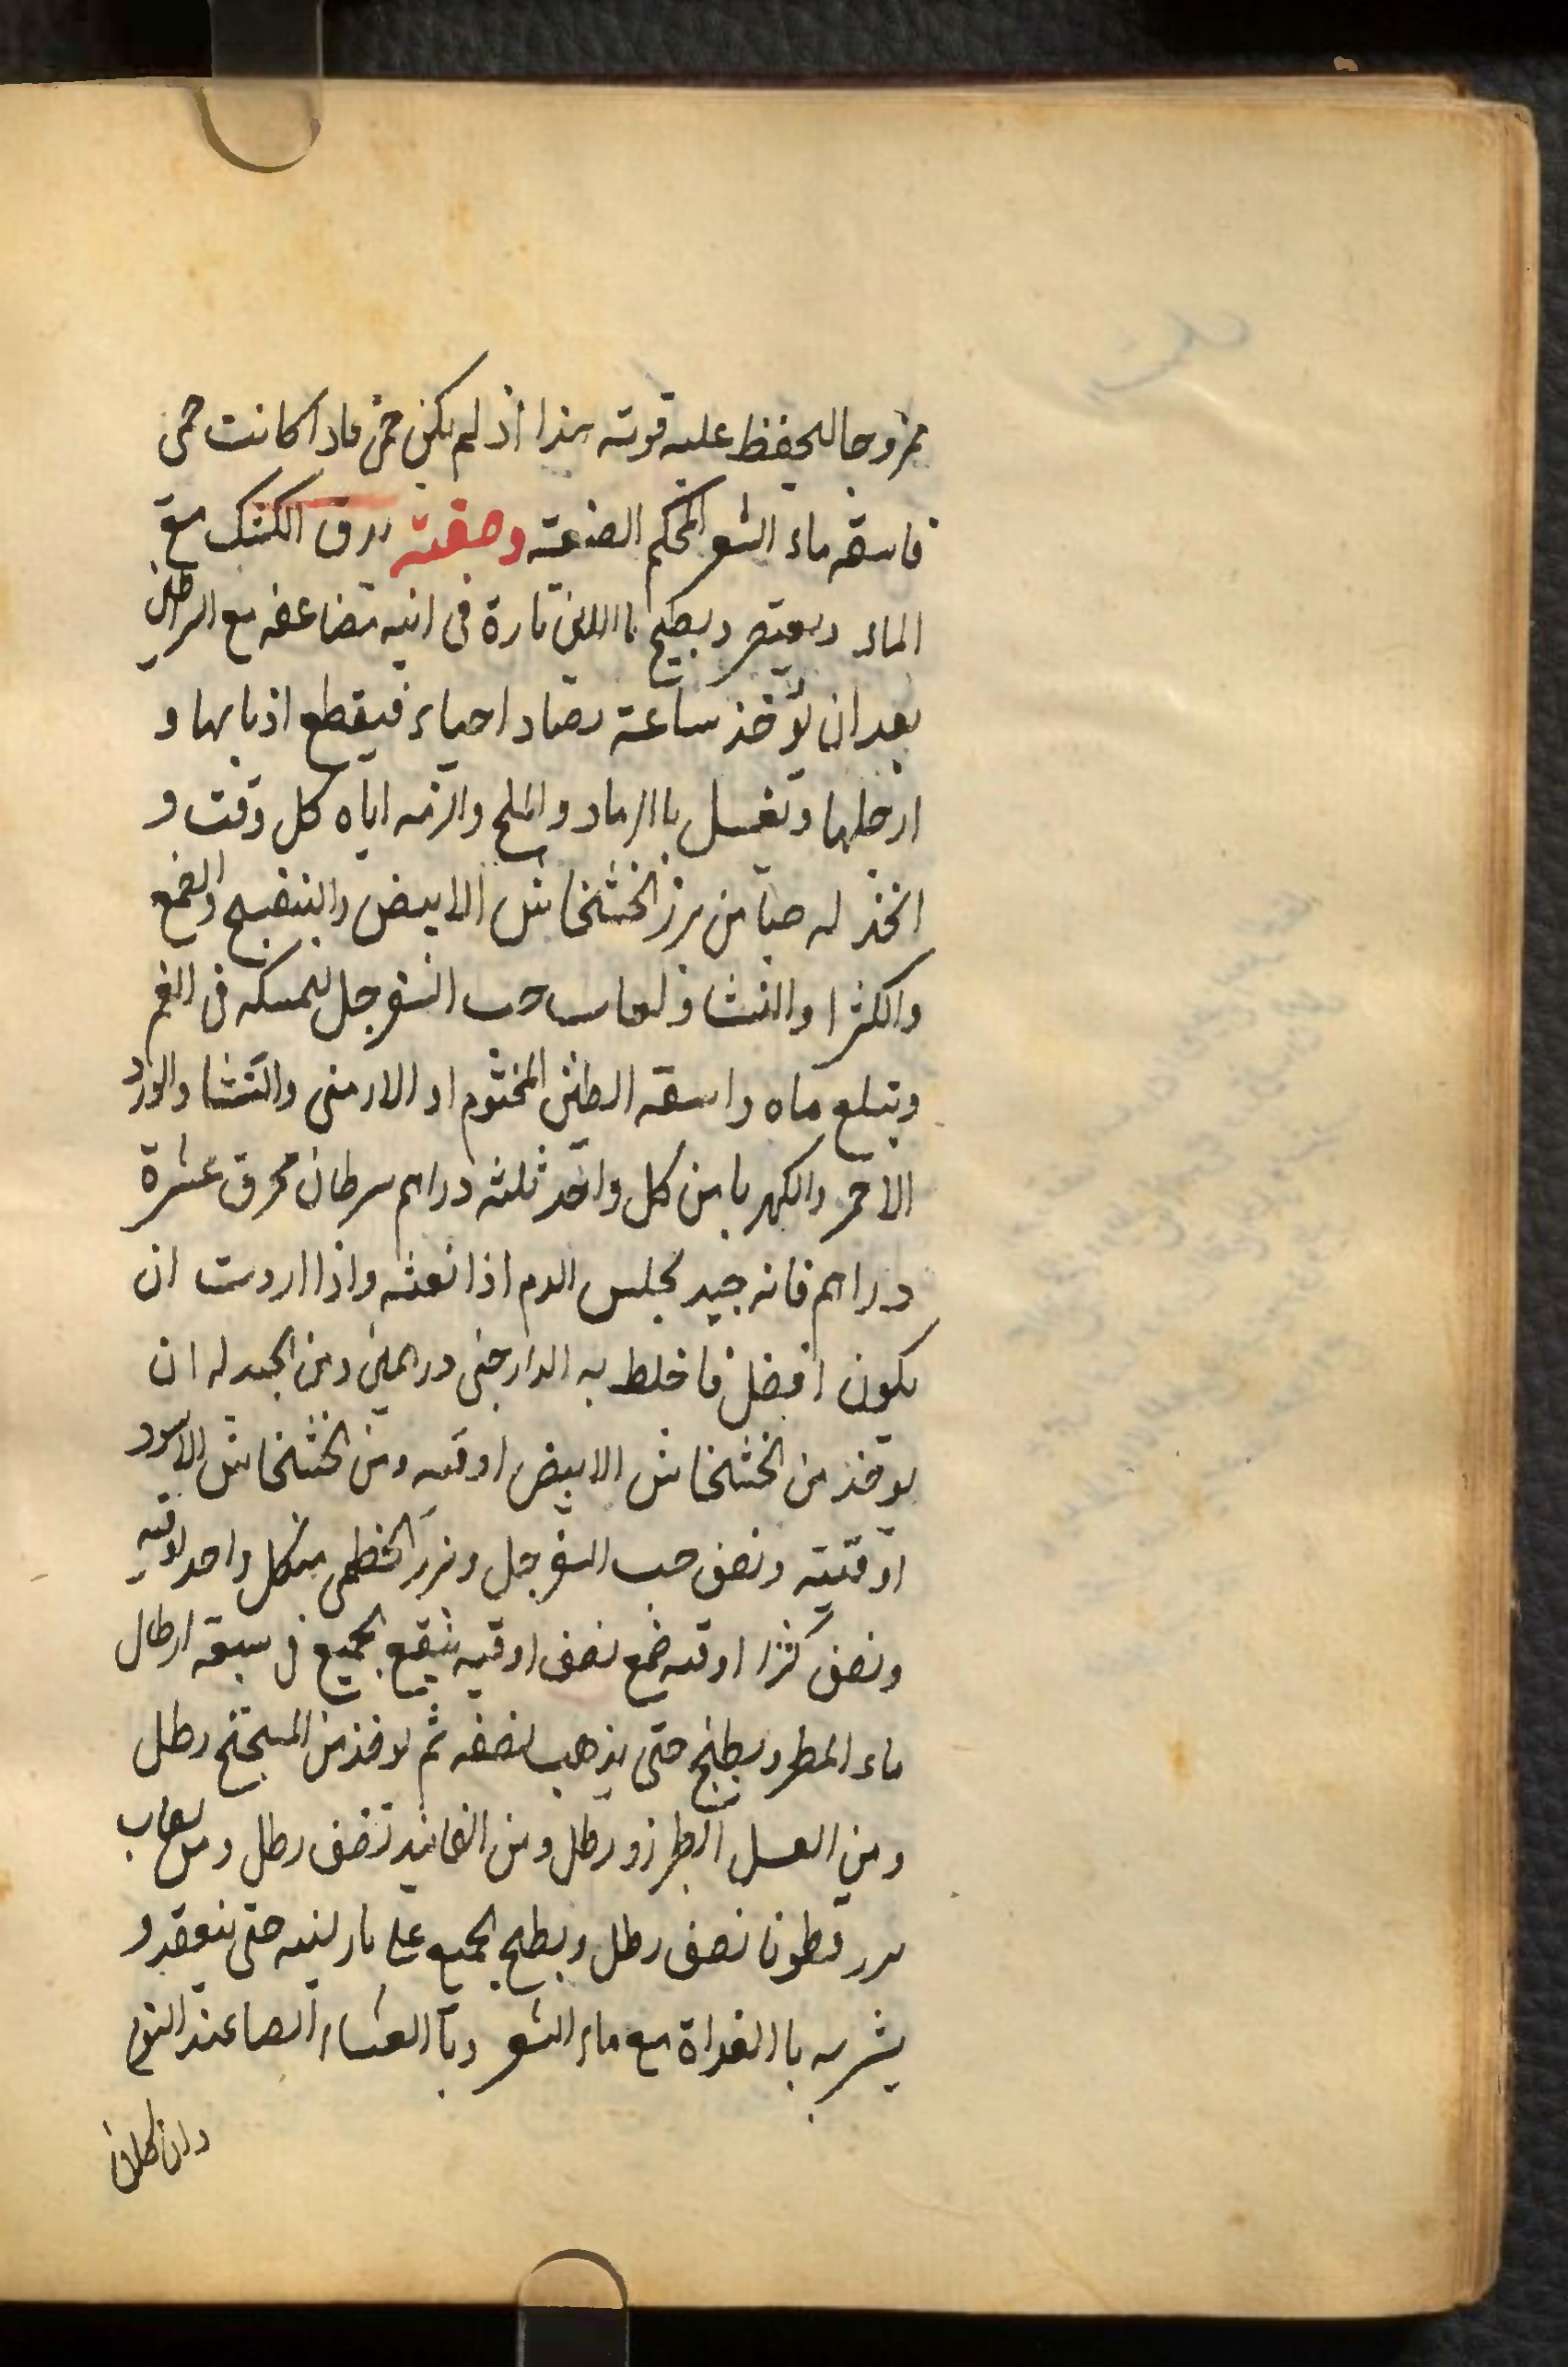 ممزوجا لحفظ عليه قوته هذا اذ لم يكن حمى فاذا كانت حمى
فاسقه ماء الشعير المحكم الصنعة وصفته يدق الكشك مع
الماء ويعتصر ويطبخ باللين تارة في انيه تضاعفه مع السراطين
بعد ان تؤخذ ساعة تصاد احياء فيقطع اذنابها و
ارجلها وتغسل باالرماد والملح والزمه اياه كل وقت و
اتخذ له حبا من بزر الخشخاش الابيض والبنفسج والصمغ
والكثرا والنشا ولعاب حب السفرجل ليمسكه في الفم
وتبلع ماه واسقه الطين المختوم او الارمنى والنشا والورد
الاحمر والكهربا من كل واحد ثلثه دراهم سرطان محرق عشرة
دراهم فانه جيد لحبس الدم اذا نفثه واذا اردت ان
يكون افضل فاخلط به الدارجنى درهمين ومن الجيد له ان
يوخذ من الخشخاش الابيض اوقيه ومن الخشخاش الاسود
اوقتيه ونصف حب السفرجل وبزر الخطمى من كل واحد اوقيه
ونصف كثرا اوقيه صمغ نصف اوقيه ينقع الجميع في سبعة ارطال
ماء المطر ويطبخ حتى يذهب نصفه ثم يوخذ من الميبختج رطل
ومن العسل الطبرزد رطل ومن الفانيد نصف رطل ومن لعاب
بزر قطونا نصف رطل ويطبخ الجميع على نار لينه حتى ينعقد و
يشربه باالغداة مع ماء الشعير وباالعشاء ايضا عند النوم
وان كان